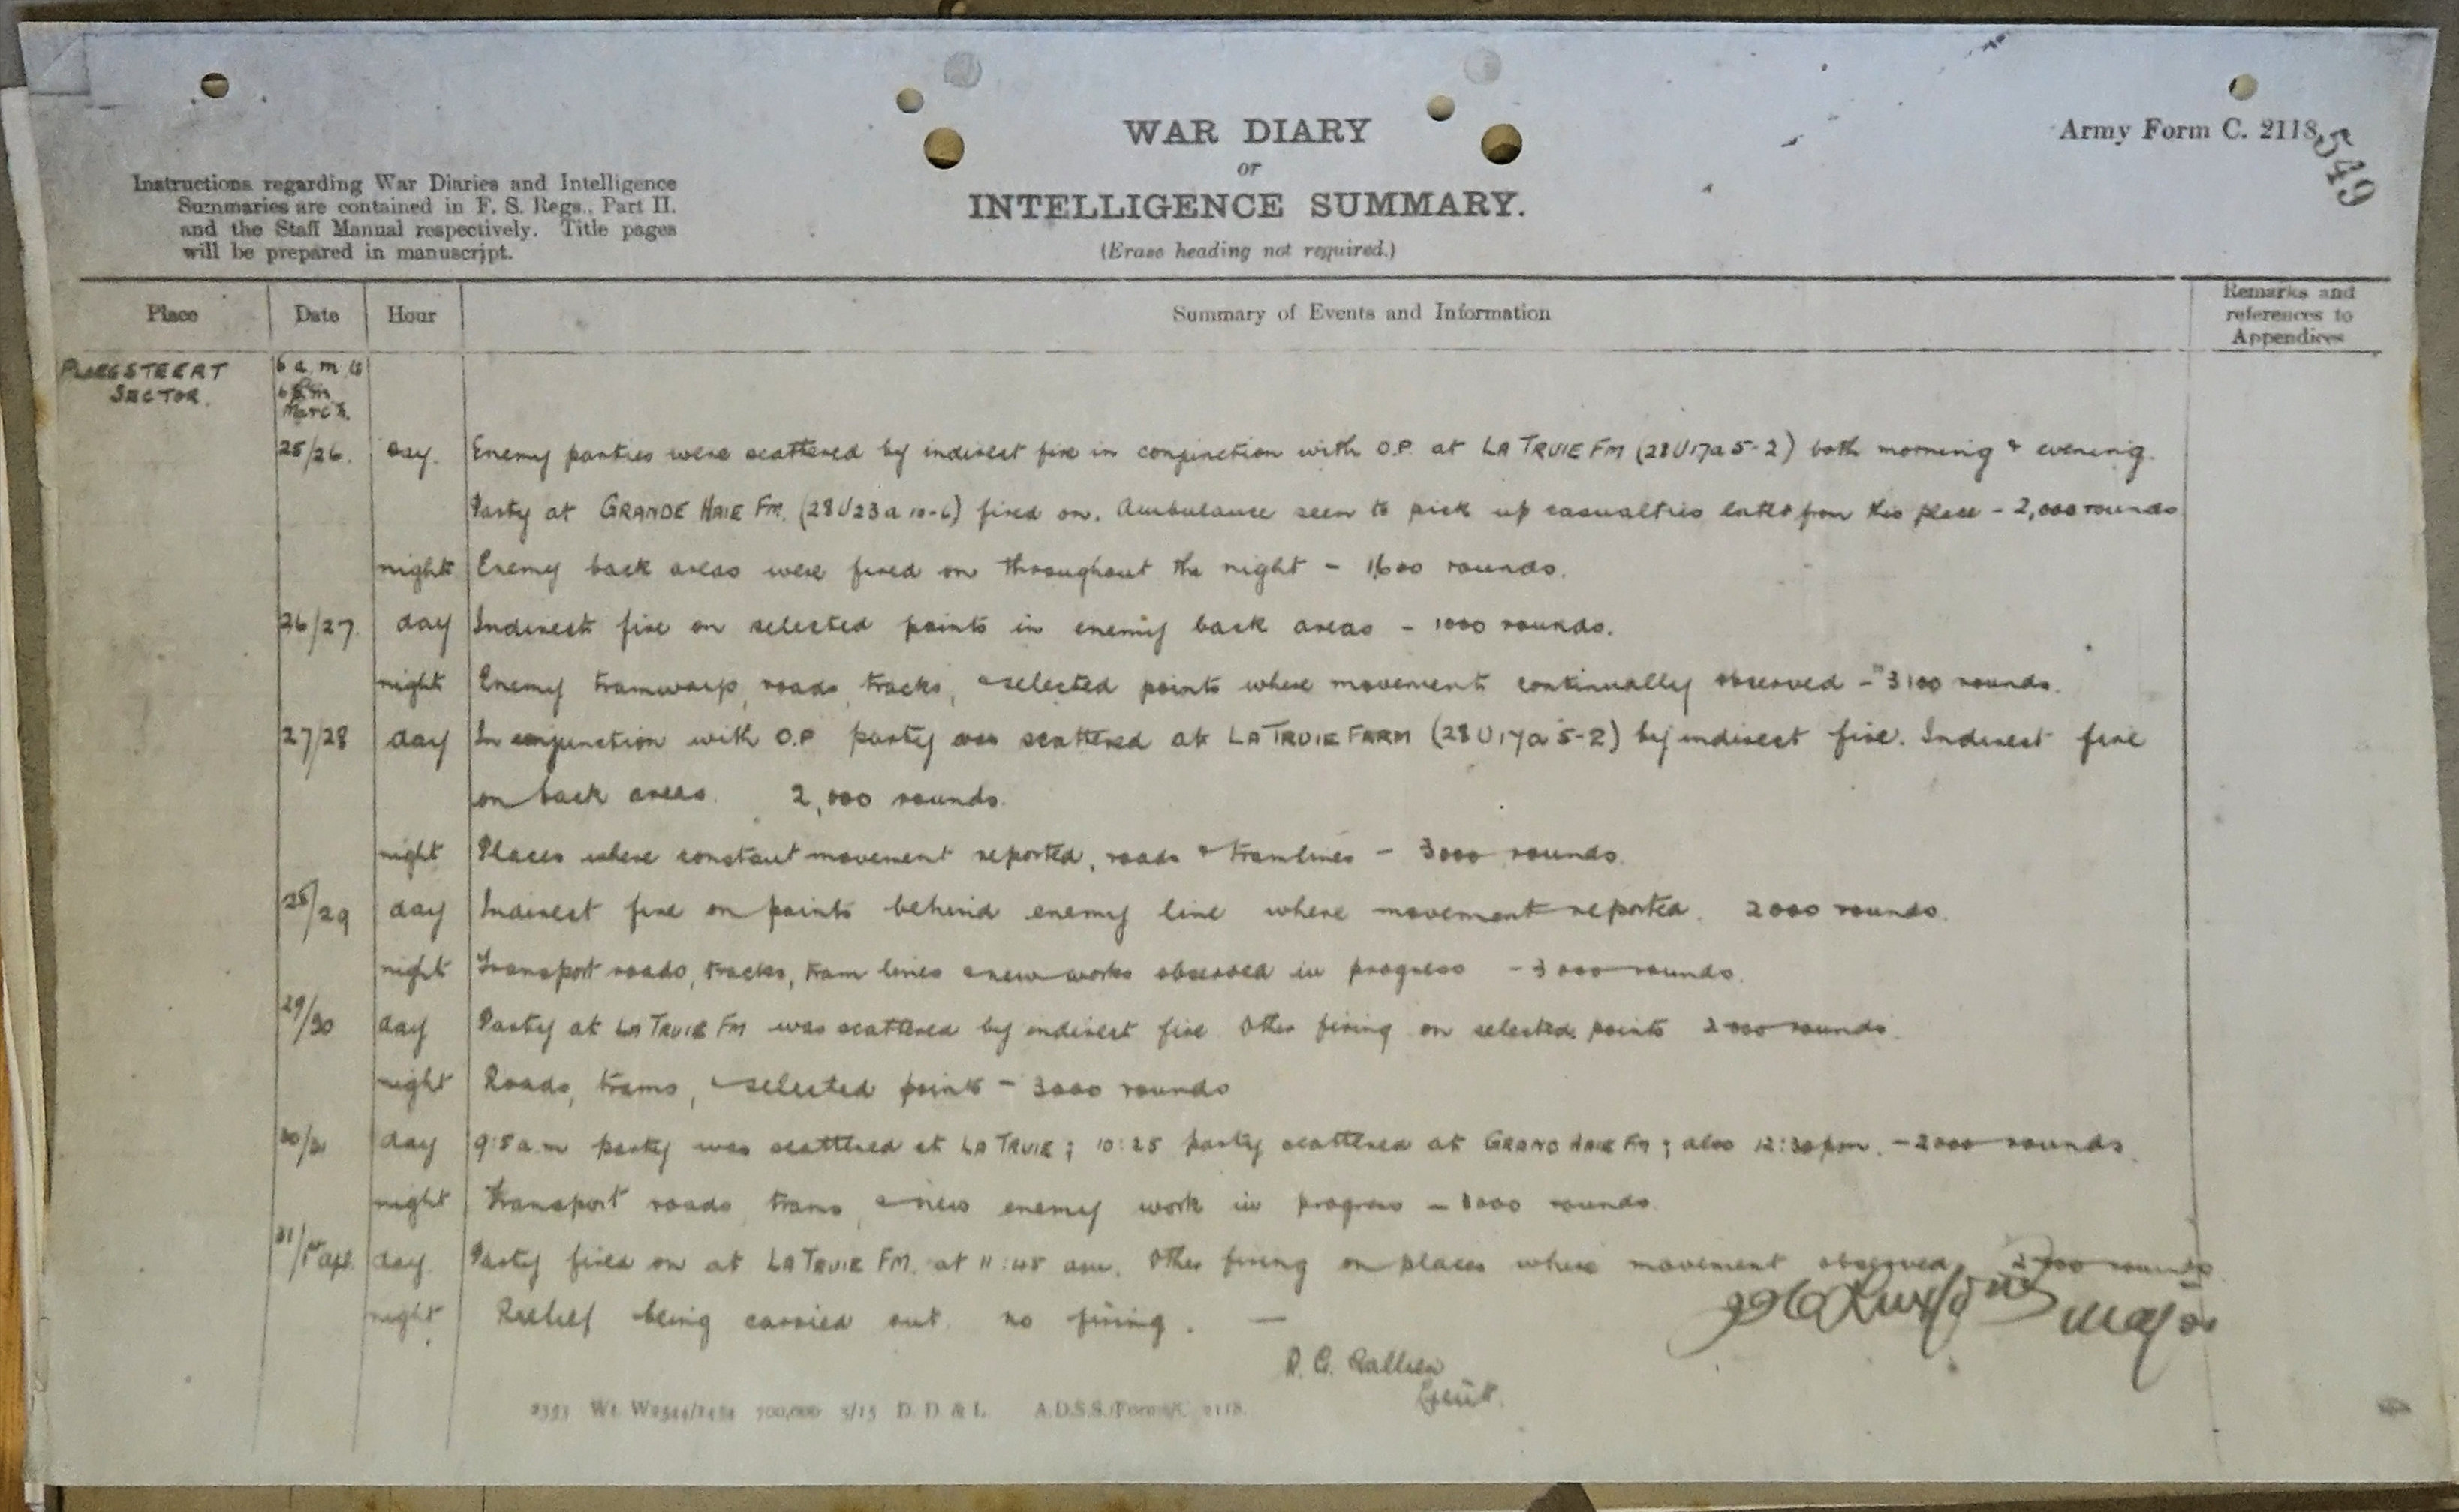 Army Form C. 2118.
549
WAR DIARY
or
INTELLIGENCE SUMMARY.
(Erase heading not required.)
Instructions regarding War Diaries and Intelligence
Summaries are contained in F. S. Regs., Part II.
and the Staff Manual respectively. Title pages
will be prepared in manuscript.
Place Date Hour Summary of Events and Information Remarks and references to Appendices
PLOEGSTEERT
SECTOR.
6 a.m. to
March.
25/26. day. Enemy parties were scattered by indirect fire in conjunction with O.P. at LA TRUIE FM (28U17a5-2) both morning & evening.
Party at GRANDE HAIE FM. (28U23a10-6) fired on. Ambulance seen to pick up casualties later from this place - 2,000 rounds
night Enemy back areas were fired on throughout the night - 1,600 rounds.
26/27. day Indirect fire on selected points in enemy back areas - 1000 rounds.
night Enemy tramways, roads, tracks, & selected points where movement continually observed - 3100 rounds.
27/28 day In conjunction with O.P party was scattered at LA TRUIE FARM (28U17a5-2) by indirect fire. Indirect fire
on back areas. 2,000 rounds.
night Places where constant movement reported, roads & tramlines - 3000 rounds.
28/29 day Indirect fire on points behind enemy line where movement reported. 2000 rounds.
night Transport roads, tracks, tram lines & new works observed in progress - 3000 rounds.
29/30 day Party at LA TRUIE FM was scattered by indirect fire. Other firing on selected points 2000 rounds.
night Roads, trams, & selected points - 3000 rounds
30/31 day 9:5 a.m party was scattered at LA TRUIE; 10:25 party scattered at GRAND HAIE FM; also 12:30 pm. - 2000 rounds.
night Transport roads, trams, & new enemy work in progress - 3000 rounds.
31/1st Apl. day. Party fired on at LA TRUIE FM. at 11:45 am. Other firing on places where movement observed. 2000 rounds.
night Relief being carried out. no firing. —
Major
Lieut.
D. D. & L. A.D.S.S./Forms/C. 2118.